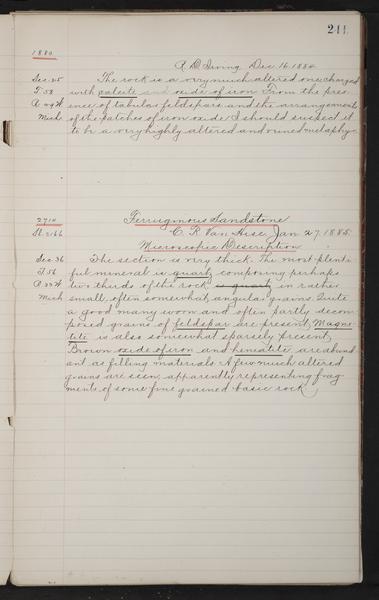 241
1880
R D Irving Dec 16. 1884
Sec. 25 The rock is a very much altered one, charged
T. 58 with calcite and oxide of iron From the pres-
R 49 W ence of tabular feldspars and the arrangements
Mich of the patches of iron oxide I should suspect it
to be a very highly altered and ruined melaphyr
2710 Ferruginous Sandstone
Sl. 2166 C. R. Van Hise, Jan 27. 1885.
Microscopic Description
Sec. 36 The section is very thick. The most plenti-
T. 56 ful mineral is quartz composing perhaps
R 33 W two thirds of the rock is quartz in rather
Mich small, often somewhat angular grains. Quite
a good many worn and often partly decom-
posed grains of feldspar are present, Magne-
tite is also somewhat sparsely present,
Brown oxide of iron and hematite are abund
ant as filling materials A few much altered
grains are seen, apparently representing frag
ments of some fine grained basic rock